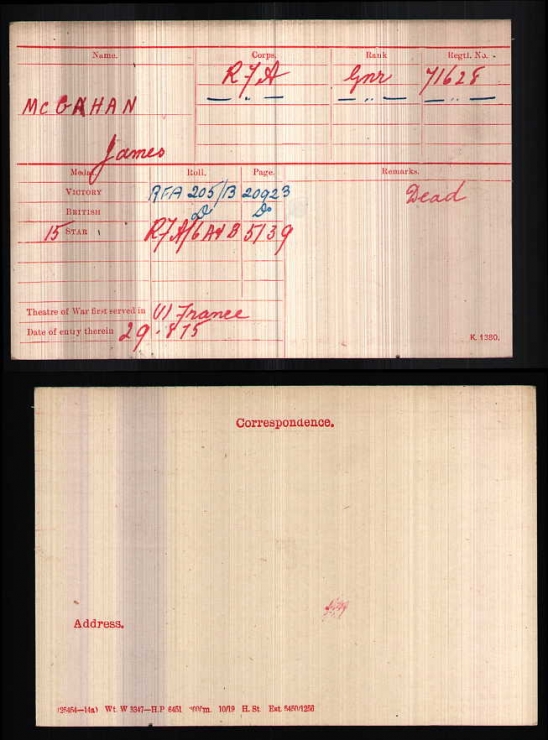 Name. Corps. Rank Regtl. No.
R7A Gnr 71628
— „ — — „ — — „ —
McGAHAN
James
Medal. Roll. Page. Remarks.
VICTORY RFA 205/B 20923 Dead
BRITISH Do Do
15 STAR R7A/6A&B 5139
Theatre of War first served in (1) France
Date of entry therein 29.8.15
K. 1380.
Correspondence.
Address.
Wt. W 3347—H.P 6451 10/19 H. St.